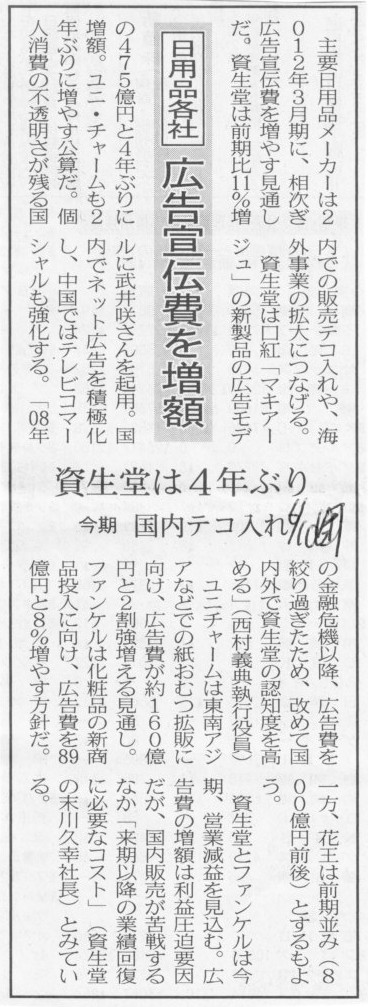 日用品各社
広告宣伝費を増額
資生堂は4年ぶり
今期 国内テコ入れ
主要日用品メーカーは2
012年3月期に、相次ぎ
広告宣伝費を増やす見通し
だ。資生堂は前期比11%増
の475億円と4年ぶりに
増額。ユニ・チャームも2
年ぶりに増やす公算だ。個
人消費の不透明さが残る国
内での販売テコ入れや、海
外事業の拡大につなげる。
資生堂は口紅「マキアー
ジュ」の新製品の広告モデ
ルに武井咲さんを起用。国
内でネット広告を積極化
し、中国ではテレビコマー
シャルも強化する。「08年
の金融危機以降、広告費を
絞り過ぎたため、改めて国
内外で資生堂の認知度を高
める」(西村義典執行役員)
ユニチャームは東南アジ
アなどでの紙おむつ拡販に
向け、広告費が約160億
円と2割強増える見通し。
ファンケルは化粧品の新商
品投入に向け、広告費を89
億円と8%増やす方針だ。
一方、花王は前期並み(8
00億円前後)とするもよ
う。
資生堂とファンケルは今
期、営業減益を見込む。広
告費の増額は利益圧迫要因
だが、国内販売が苦戦する
なか「来期以降の業績回復
に必要なコスト」(資生堂
の末川久幸社長)とみてい
る。